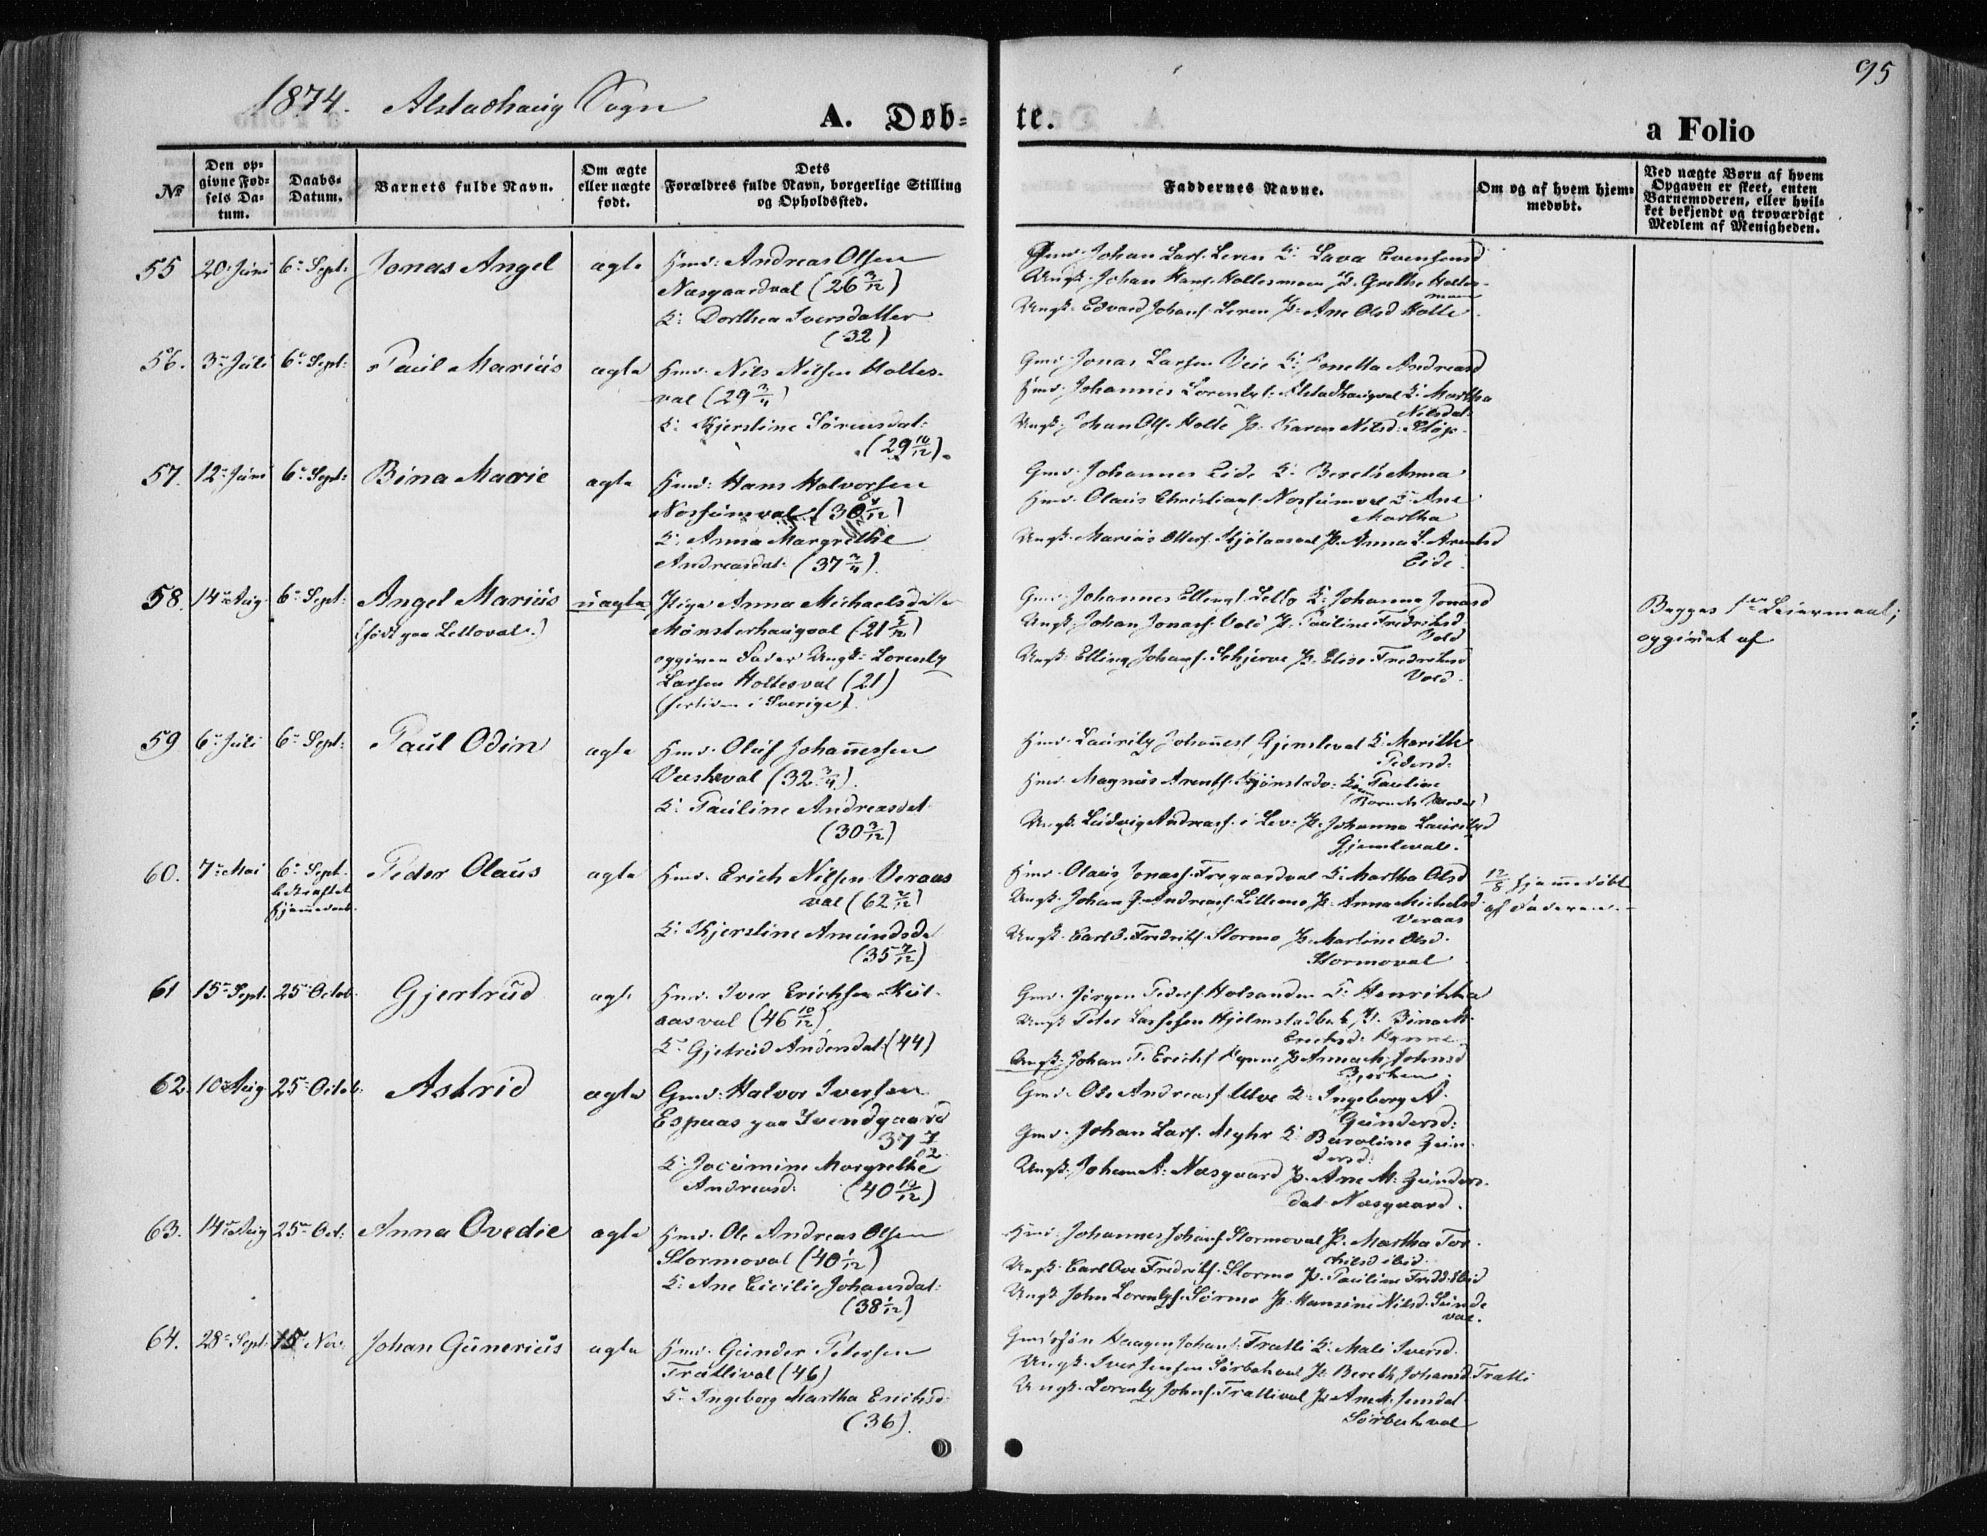 1874. Alstadhaug Sogn
A. Døb-
te.
a Folio
95
No
Den op-
givne Fød-
sels Da-
tum.
Daabs-
Datum.
Barnets fulde Navn.
Om ægte
eller uægte
født.
Dets
Forældres fulde Navn, borgerlige Stilling
og Opholdssted.
Faddernes Navne.
Om og af hvem hjem-
medøbt.
Ved uægte Børn af hvem
Opgaven er skeet, enten
Barnemoderen, eller hvil-
ket bekjendt og troværdigt
Medlem af Menigheden.
55 20 Juni 6 Sept: Jonas Angel ægte Hmd: Andreas Olsen
Næsgaardval (26 3/12)
K: Dorthea Iversdatter
(32)
Gmd. Johan Lars. Leren K: Lava Evensensd
Ungk. Johan Hans. Holtesmoen P. Grethe Holtes-
moen
Ungk. Edvard Johans. Leren P: Ane Olsd Holte
56. 3 Juli 6 Sept: Paul Marius ægte Hmd. Nils Nilsen Holtes-
val (29 3/4)
K: Kjerstine Sørensdat:
(29 10/12).
Gmd Jonas Larsen Veie K: Jonetta Andreasd
Hmd. Johannes Lorents. Alstadhaugval K: Martha
Nilsdat.
Ungk. Johan Ols. Holte P. Karen Nilsd:
57. 12 Juni 6 Sept: Bina Marie ægte Hmd: Hans Halvorsen
Nossumval (30 4/12)
K: Anna Margrethe
Andreasdat: (37 3/4).
Gmd. Johannes Eide K: Bereth Anna
Hmd. Olaus Christians. Nossumval K: Ane
Martha
Ungk. Marius Otters. P. Anna L. Arentsd
Eide.
58. 14 Aug 6 Sept: Angel Marius uægte Pige Anna Michaelsdatter
(født paa Lelloval.) Mønsterhaugval (21 5/12)
opgiven Fader Ungk: Lorents
Larsen Holtesval (21)
(for tiden i Sverige).
Gmd. Johannes Ellings. Lello K: Johanna Jonasd
Ungk. Johan Jonass. Vold P. Pauline Fredriksd
Vold
Ungk: Elling Johans. Schjerve P. Elise Fredriksd
Vold.
Begges 1ste Leiermaal;
opgivet af
59 6 Juli 6 Sept: Paul Odin ægte Hmd. Oluf Johannessen
(32 3/4).
K: Pauline Andreasdat.
(30 3/12)
Hmd. Laurits Johannes. Gjemleval K: Marith
Pedersd.
Hmd. Magnus Arents. K: Pauline
(Barnets Moder)
Ungk. Ludvig Andreass. i Lev: P. Johanna Lauritsd
Gjemleval.
60. 7 Mai 6 Sept. Peder Olaus ægte Hmd. Erich Nilsen Veraas
bekræftet
hjemmedaab
val (62 2/12)
K: Kjerstine Amundsd
(35 7/12)
Hmd. Olaus Jonass. K: Martha Olsd
Ungk. Johan G. Andreass. Lillemo P. Anna Michelsd
Veraas
Ungk. Carl O. Fredriks. Stormo P. Martine Olsd.
Stormoval
12/5 hjemmedøbt
af Faderen.
61 15 Sept. 25 Octob. Gjertrud ægte Hmd. Iver Erichsen
aasval (46 10/12)
K: Gjetrud Andersdat: (44)
Gmd. Jørgen Peders. Holsanden K: Henrikka
Ungk Peter Larsesen Hjelmstadbak P. Bina M.
Erichsd. Rynne
Ungk. Johan P. Erichs. Rynne P. Anna M. Johnsd
Bjerken.
62. 10 Aug 25 Octob. Astrid ægte Gmd: Halvor Iversen
Espaas paa Tvendgaard
37 7/12
K: Jacumine Margrethe
Andreasd. (40 10/12)
Gmd. Ole Andreass Ulve K: Ingeborg A.
Gundersd:
Gmd. Johan Lars. Myhr K: Baroline Gun-
dersd:
Ungk: Johan A: Næsgaard P. Ane M. Gunders-
dat Næsgaard.
63. 14 Aug 25 Oct: Anna Ovedie ægte Hmd. Ole Andreas Olsen
Stormoval (40 1/12)
K: Ane Cicilie Johansdat:
(38 1/12)
Hmd. Johannes Johans. Stormoval P. Martha Tor-
kilsd ibid.
Ungk. Carl Ove Fredriks. Stormo P. Pauline Fredd. ibid
Ungk John Lorents. Sørmo P. Hansine Nilsd. Sunde
val.
64. 28 Sept: 15 Nov. Johan Gunerius ægte Hmd. Gunder Petersen
Trætlival (46)
K: Ingeborg Martha Erichsd:
(36).
Haagen Johans. Trætli K: Mali Iversd.
Ungk. Iver Jensen Sørbakval P. Bereth Johansd. Trætli
Ungk. Lorents Johns. Trætlival P. Ane M. Jensdat
Sørbakval